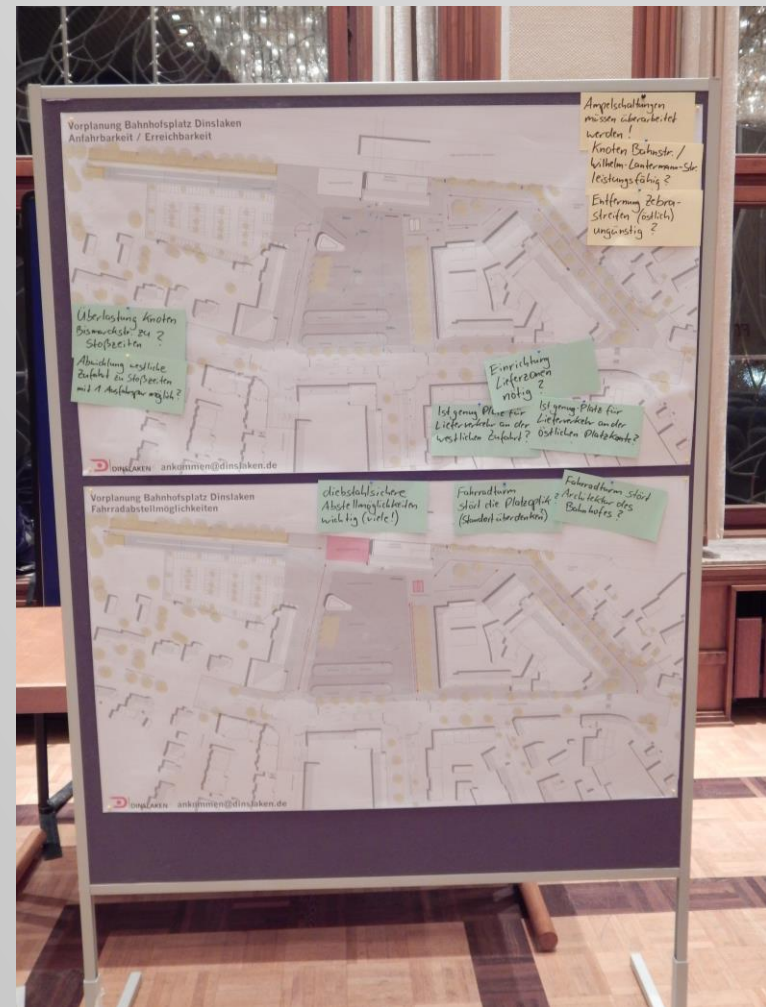 Vorplanung Bahnhofsplatz Dinslaken
Anfahrbarkeit / Erreichbarkeit
Ampelschaltungen
müssen überarbeitet
werden!
Knoten Bahnstr./
Wilhelm-Lantermann-Str.
leistungsfähig?
Entfernung Zebra-
streifen (östlich)
ungünstig?
Überlastung Knoten
Bismarckstr. zu ?
Stoßzeiten
Abwicklung westliche
Zufahrt zu Stoßzeiten
mit 1 Ausfahrspur möglich?
Einrichtung
Lieferzonen
nötig?
Ist genug Platz für
Lieferverkehr an der
westlichen Zufahrt?
Ist genug Platz für
Lieferverkehr an der
östlichen Platzkante?
DINSLAKEN ankommen@dinslaken.de
Vorplanung Bahnhofsplatz Dinslaken
Fahrradabstellmöglichkeiten
diebstahlsichere
Abstellmöglichkeiten
wichtig (viele!)
Fahrradturm
stört die Platzoptik ?
(Standort überdenken)
Fahrradturm stört
Architektur des
Bahnhofes?
DINSLAKEN ankommen@dinslaken.de